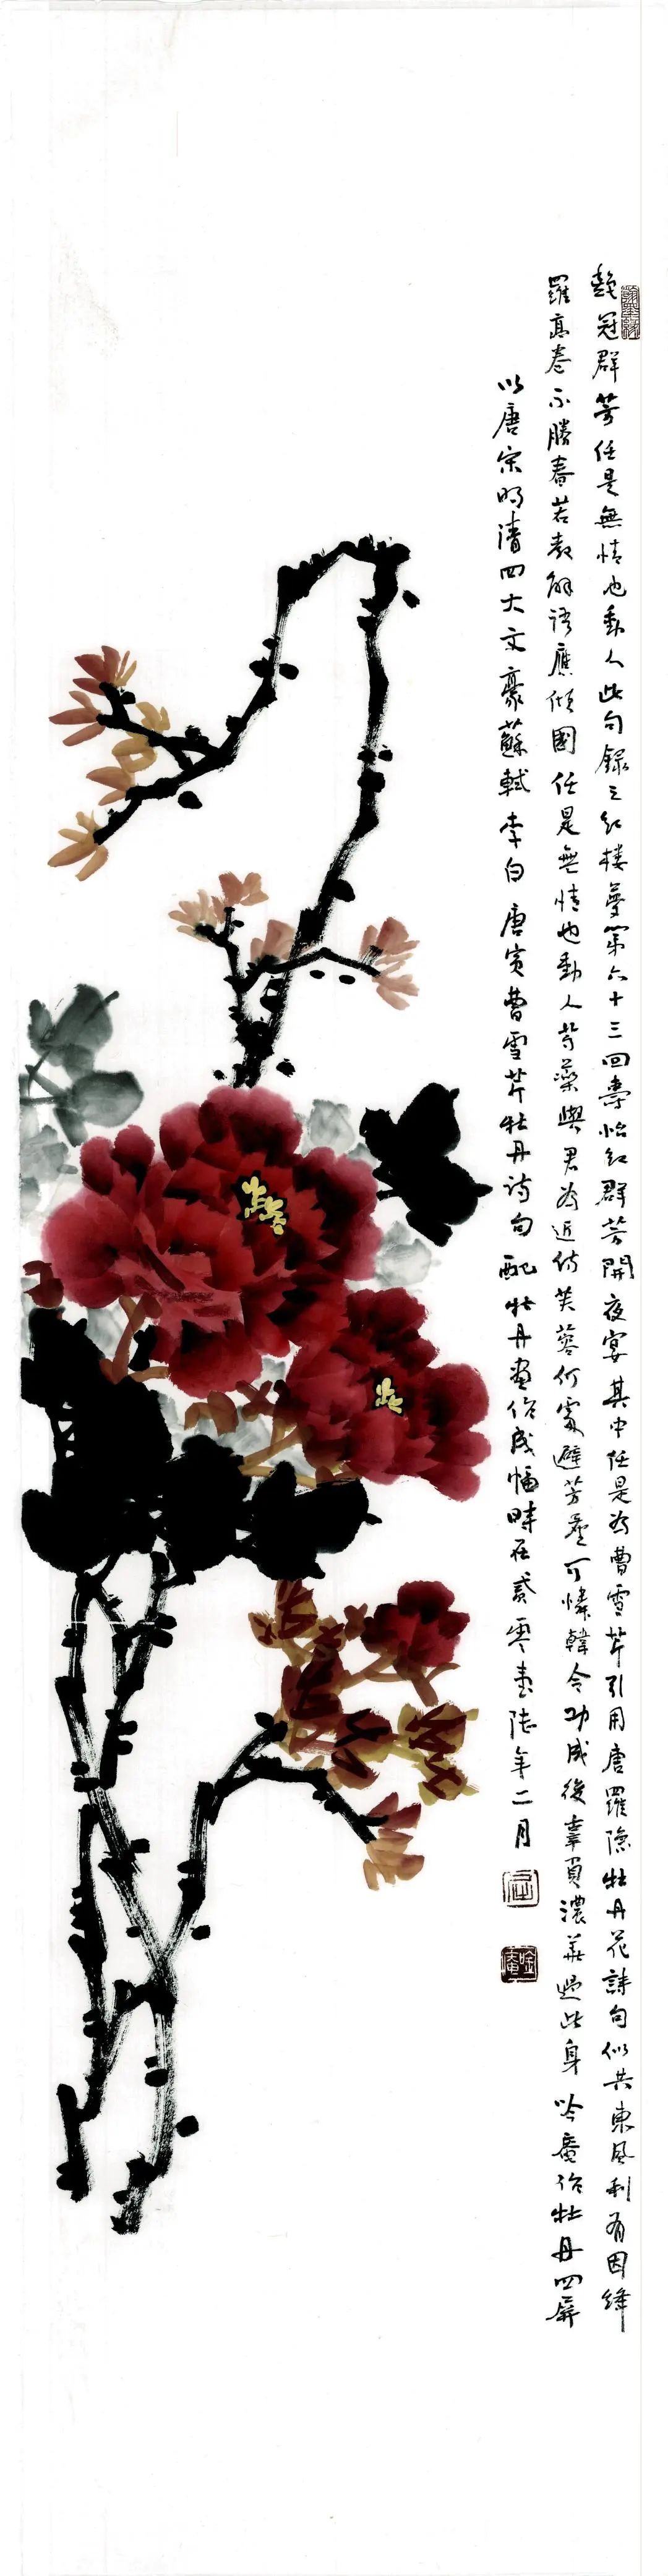 艷冠群芳任是無情也動人此句錄之紅楼夢第六十三回壽怡紅群芳開夜宴其中任是為曹雪芹引用唐羅隐牡丹花詩句似共東風别有因絳
羅高卷不勝春若教解語應傾國任是無情也動人芍藥與君為近侍芙蓉何處避芳塵可憐韓令功成後辜負濃華過此身吟庵作牡丹四屏
以唐宋明清四大文豪蘇軾李白唐寅曹雪芹牡丹诗句配牡丹畫作成幅時在贰零壹陸年二月